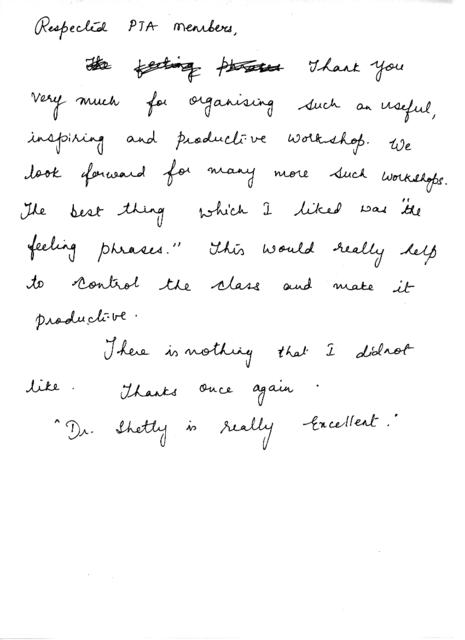 Respected PTA members,
The feeling phrases Thank you
very much for organising such an useful,
inspiring and productive workshop. We
look forward for many more such workshops.
The best thing which I liked was "the
feeling phrases." This would really help
to control the class and make it
productive.
There is nothing that I did not
like. Thanks once again.
"Dr. Shetty is really Excellent."